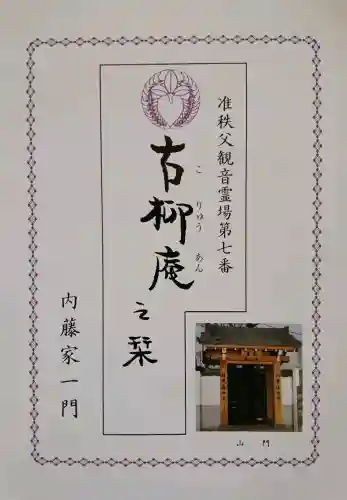 准秩父観音霊場第七番
古柳庵之栞
こ りゅう あん
内藤家一門
山門